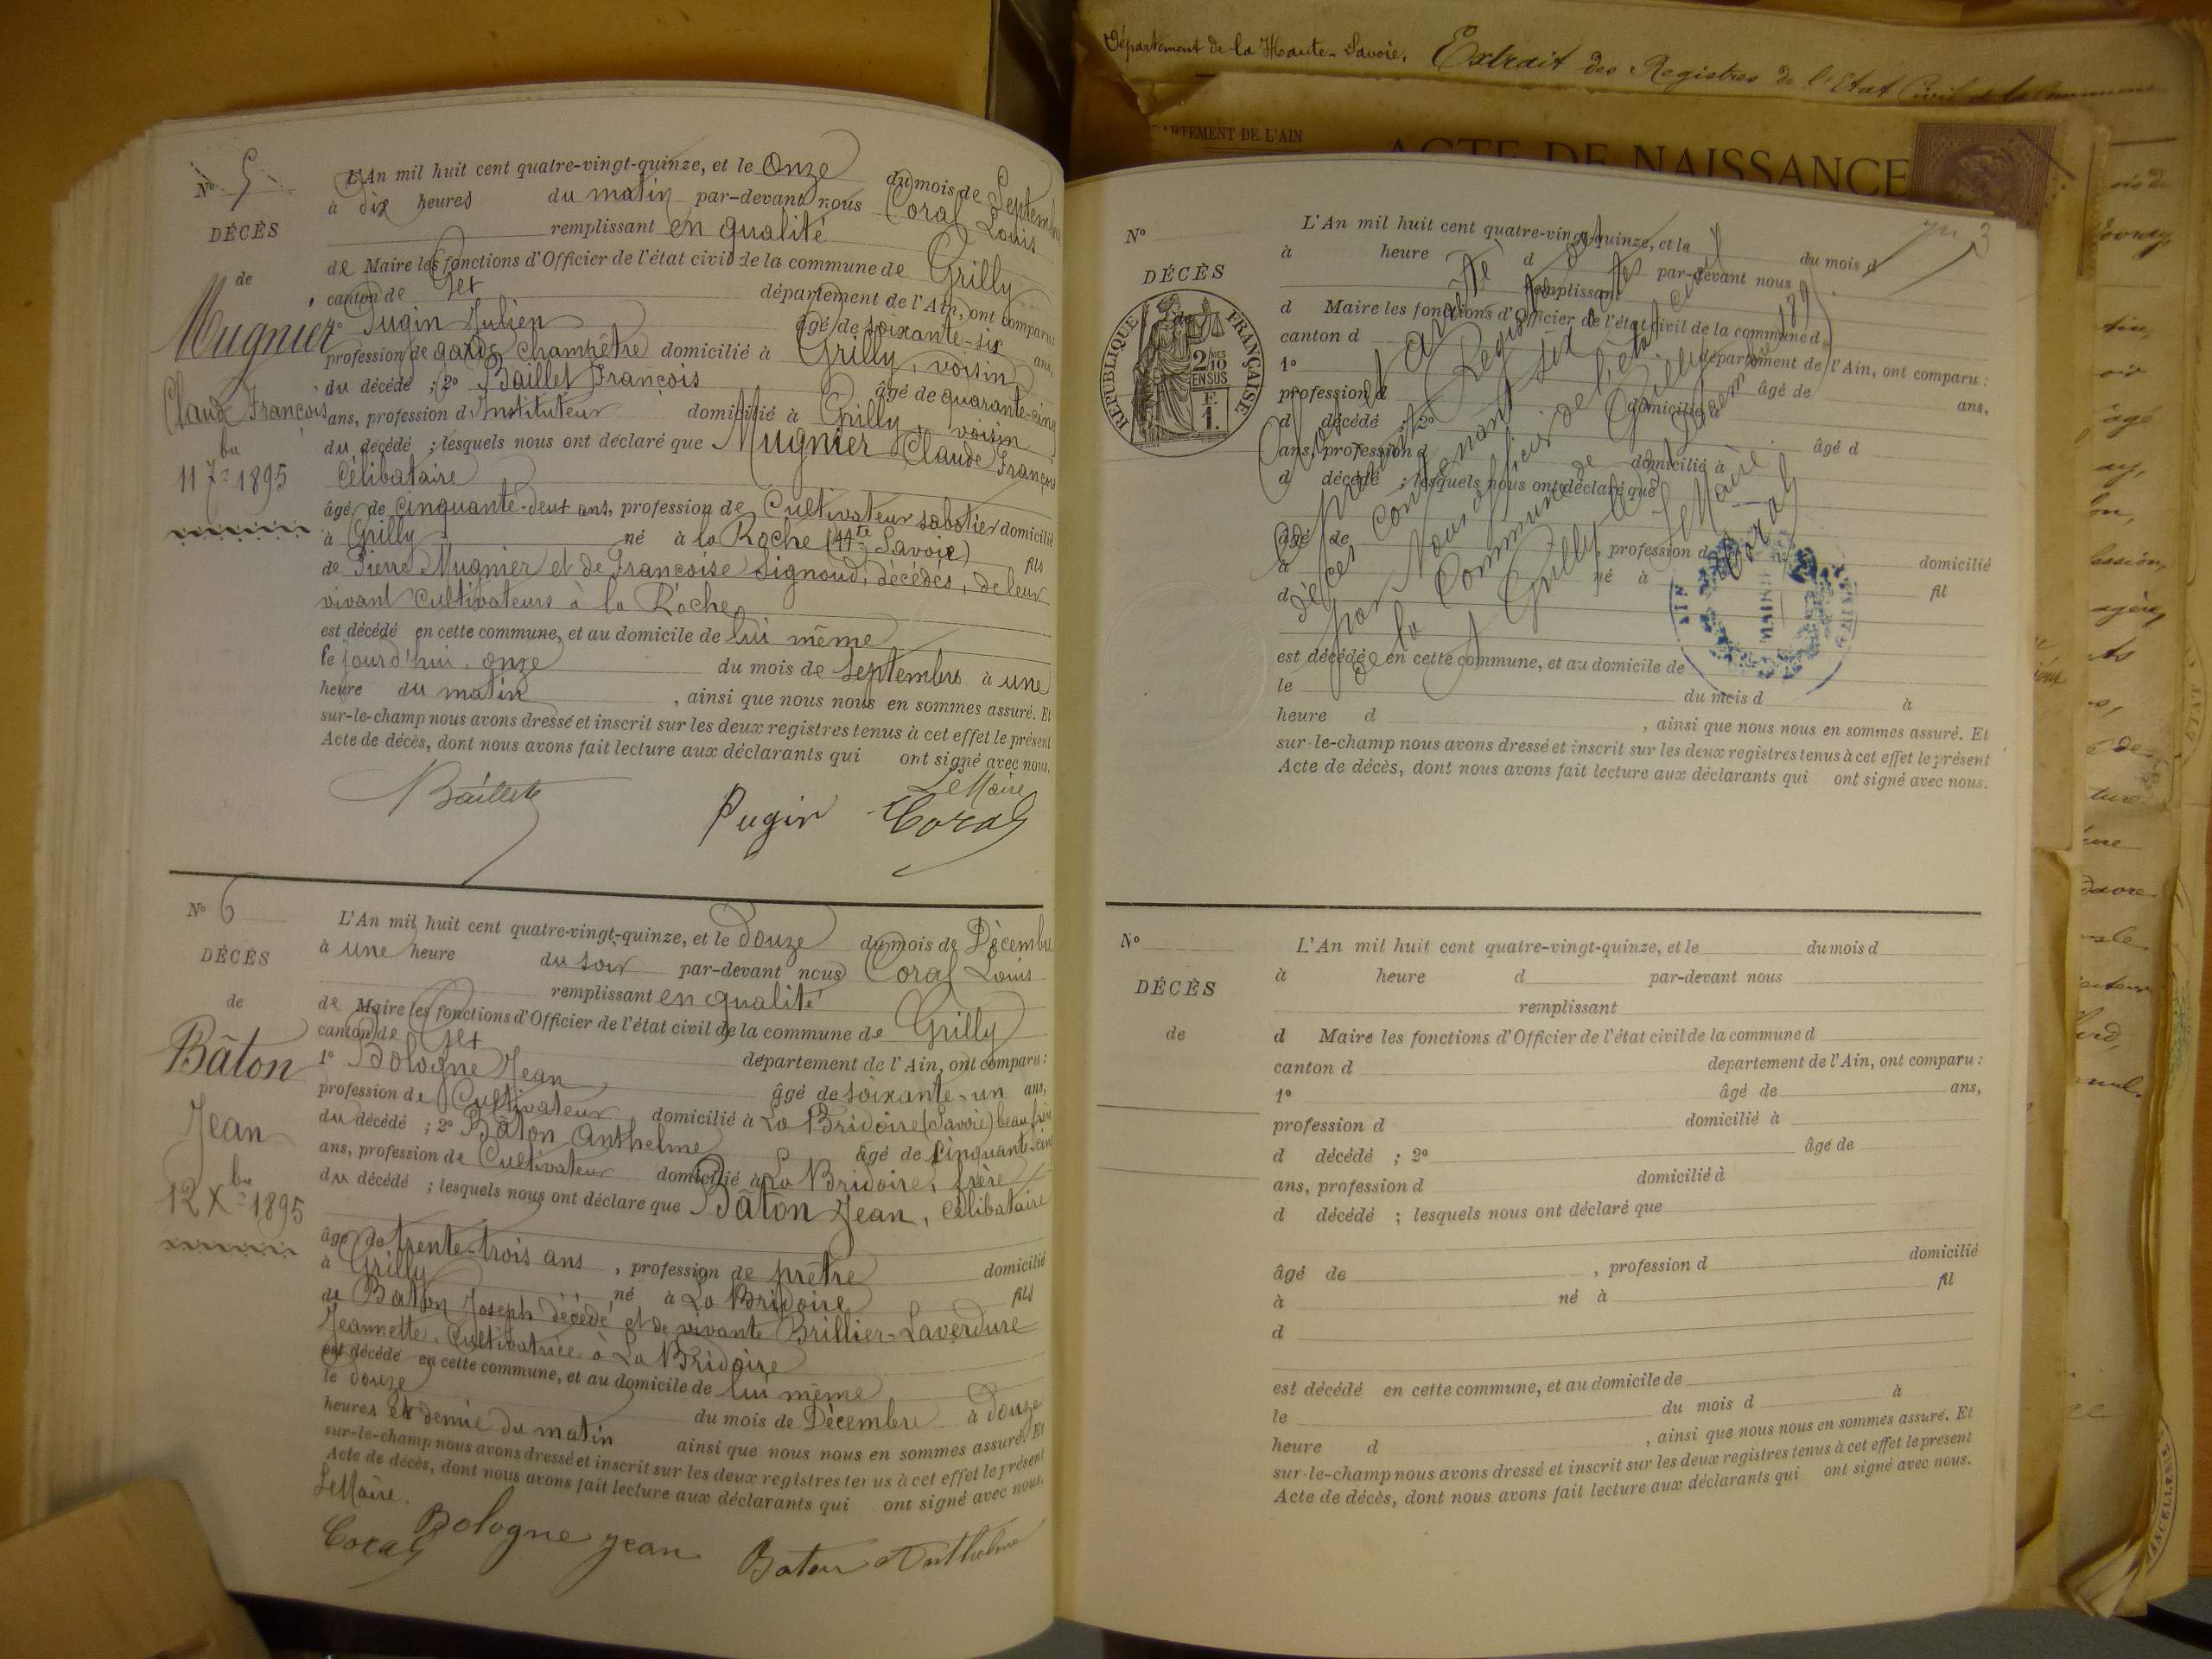 Nº 5
DÉCÈS
de
Mugnier
Claude François
11 7bre 1895
L'An mil huit cent quatre-vingt-quinze, et le onze du mois de Septembre
à dix heures du matin par-devant nous Coral Louis
remplissant en qualité
de Maire les fonctions d'Officier de l'état civil de la commune de Grilly
canton de Gex département de l'Ain, ont comparu:
1º Pugin Julien âgé de soixante-six ans,
profession de garde champêtre domicilié à Grilly, voisin
du décédé ; 2º Baillet François âgé de quarante-cinq
ans, profession d'Instituteur domicilié à Grilly, voisin
du décédé ; lesquels nous ont déclaré que Mugnier Claude François
Célibataire
âgé de cinquante-deux ans, profession de Cultivateur sabotier domicilié
à Grilly né à la Roche (Hte Savoie) fils
de Pierre Mugnier et de Françoise Signoud, décédés, de leur
vivant cultivateurs à la Roche
est décédé en cette commune, et au domicile de lui même
le jourd'hui onze du mois de septembre à une
heure du matin , ainsi que nous nous en sommes assuré. Et
sur-le-champ nous avons dressé et inscrit sur les deux registres tenus à cet effet le présent
Acte de décès, dont nous avons fait lecture aux déclarants qui ont signé avec nous.
Le Maire
Baillet Pugin Coral
Nº 6
DÉCÈS
de
Bâton
Jean
12 Xbre 1895
L'An mil huit cent quatre-vingt-quinze, et le douze du mois de Décembre
à une heure du soir par-devant nous Coral Louis
remplissant en qualité
de Maire les fonctions d'Officier de l'état civil de la commune de Grilly
canton de Gex département de l'Ain, ont comparu:
1º Bologne Jean âgé de soixante-un ans,
profession de Cultivateur domicilié à La Bridoire (Savoie) beau frère
du décédé ; 2º Bâton Anthelme âgé de cinquante
ans, profession de Cultivateur domicilié à La Bridoire, frère
du décédé ; lesquels nous ont déclaré que Bâton Jean, célibataire
âgé de trente-trois ans , profession de prêtre domicilié
à Grilly né à La Bridoire fils
de Bâton Joseph décédé et de vivante Brillier-Laverdure
Jeannette, Cultivatrice à La Bridoire
est décédé en cette commune, et au domicile de lui même
le douze du mois de Décembre à douze
heures et demie du matin ainsi que nous nous en sommes assuré. Et
sur-le-champ nous avons dressé et inscrit sur les deux registres tenus à cet effet le présent
Acte de décès, dont nous avons fait lecture aux déclarants qui ont signé avec nous.
Le Maire.
Coral Bologne jean Baton Anthelme
Département de la Haute-Savoie. Extrait des Registres de l'Etat Civil de la Commune
DÉPARTEMENT DE L'AIN
ACTE DE NAISSANCE
Nº
DÉCÈS
de
RÉPUBLIQUE FRANÇAISE
2/10 EN SUS
F. 1.
L'An mil huit cent quatre-vingt-quinze, et le du mois d
à heure d par-devant nous
remplissant
d Maire les fonctions d'Officier de l'état civil de la commune d
canton d département de l'Ain, ont comparu :
1º âgé de ans,
profession d domicilié à
d décédé ; 2º âgé d
ans, profession d domicilié à
d décédé ; lesquels nous ont déclaré que
âgé de , profession d domicilié
à né à fil
d
est décédé en cette commune, et au domicile de
le du mois d à
heure d , ainsi que nous nous en sommes assuré. Et
sur-le-champ nous avons dressé et inscrit sur les deux registres tenus à cet effet le présent
Acte de décès, dont nous avons fait lecture aux déclarants qui ont signé avec nous.
Clos et arrêté
le présent Registre des
décès contenant six actes
par Nous officier de l'état civil
de la Commune de Grilly
A Grilly le
Le Maire
Coral
MAIRIE
AIN
Nº
DÉCÈS
de
L'An mil huit cent quatre-vingt-quinze, et le du mois d
à heure d par-devant nous
remplissant
d Maire les fonctions d'Officier de l'état civil de la commune d
canton d département de l'Ain, ont comparu :
1º âgé de ans,
profession d domicilié à
d décédé ; 2º âgé de
ans, profession d domicilié à
d décédé ; lesquels nous ont déclaré que
âgé de , profession d domicilié
à né à fil
d
est décédé en cette commune, et au domicile de
le du mois d à
heure d , ainsi que nous nous en sommes assuré. Et
sur-le-champ nous avons dressé et inscrit sur les deux registres tenus à cet effet le présent
Acte de décès, dont nous avons fait lecture aux déclarants qui ont signé avec nous.